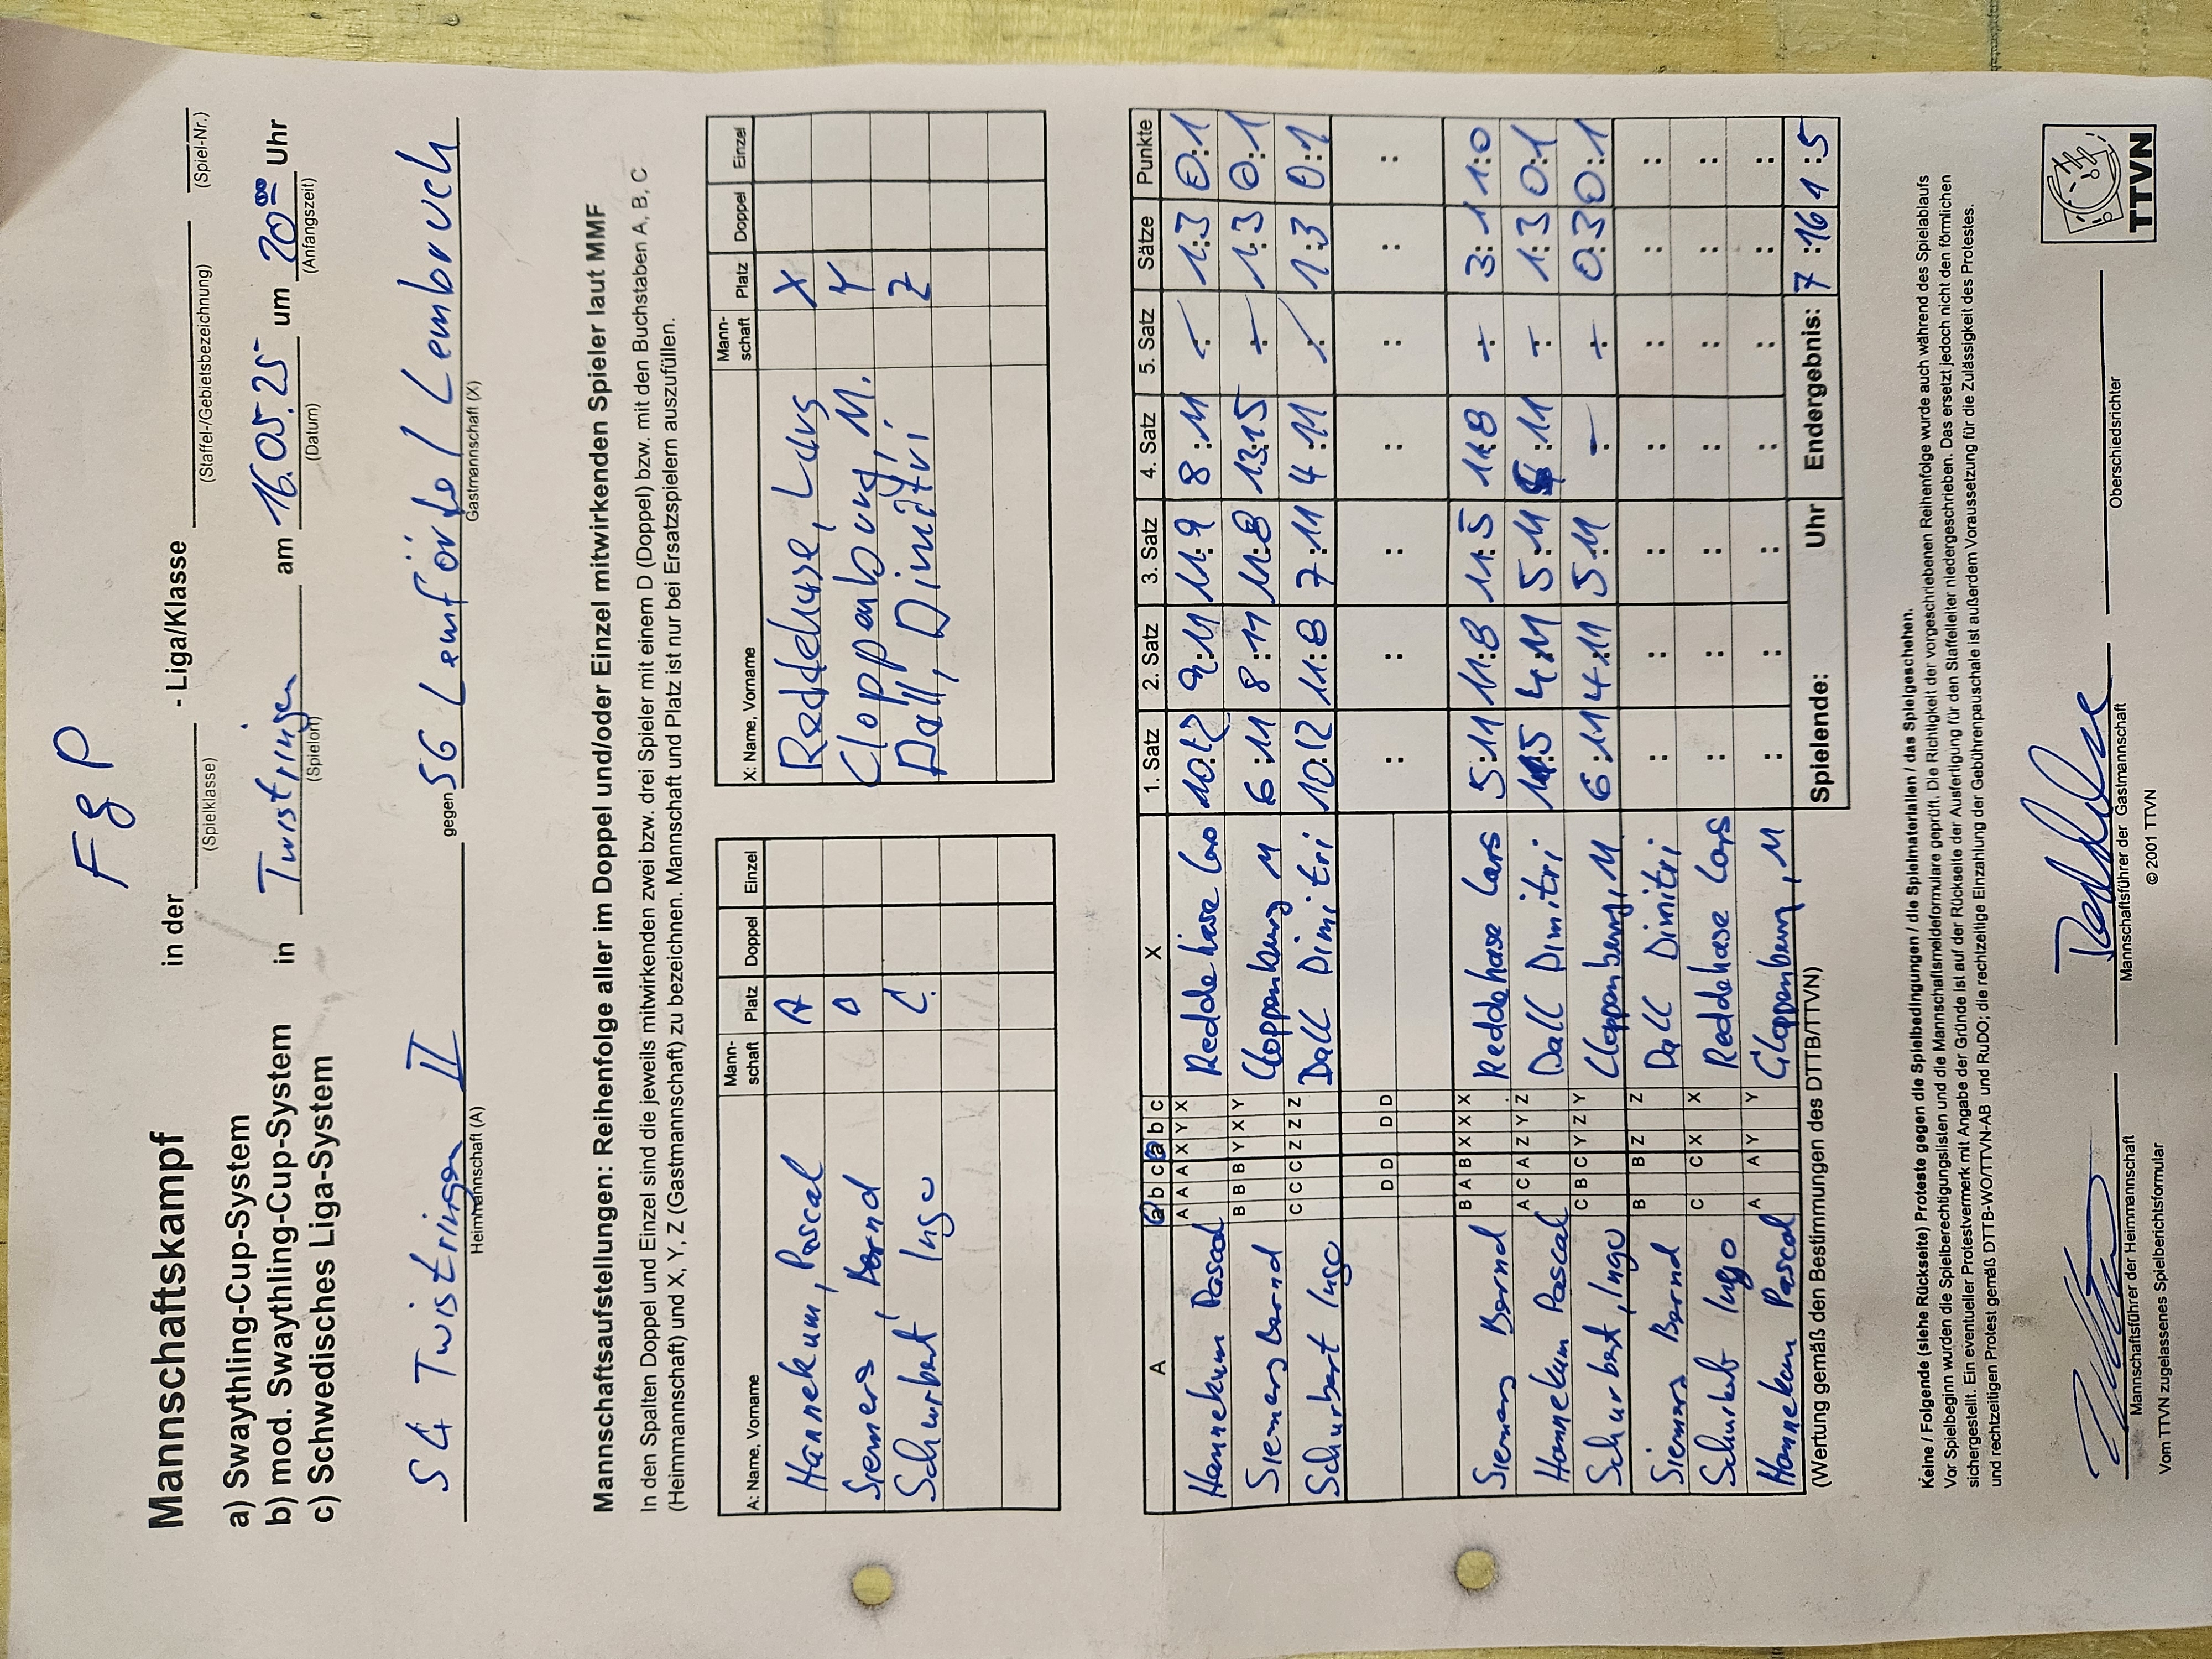 FgP
Mannschaftskampf in der - Liga/Klasse
(Spielklasse) (Staffel-/Gebietsbezeichnung) (Spiel-Nr.)
a) Swaythling-Cup-System
b) mod. Swaythling-Cup-System in Twistringen am 16.05.25 um 20⁰⁰ Uhr
c) Schwedisches Liga-System (Spielort) (Datum) (Anfangszeit)
Twistringen II gegen SG Lemförde / Lembruch
Heimmannschaft (A) Gastmannschaft (X)
Mannschaftsaufstellungen: Reihenfolge aller im Doppel und/oder Einzel mitwirkenden Spieler laut MMF
In den Spalten Doppel und Einzel sind die jeweils mitwirkenden zwei bzw. drei Spieler mit einem D (Doppel) bzw. mit den Buchstaben A, B, C
(Heimmannschaft) und X, Y, Z (Gastmannschaft) zu bezeichnen. Mannschaft und Platz ist nur bei Ersatzspielern auszufüllen.
A: Name, Vorname Mann-schaft Platz Doppel Einzel X: Name, Vorname Mann-schaft Platz Doppel Einzel
Hannekum, Pascal A Reddehase, Lars X
Siemers, Bernd B Cloppenburg, M. Y
Schurbert Ingo C Dall, Dimitri Z
A a b c a b c X 1. Satz 2. Satz 3. Satz 4. Satz 5. Satz Sätze Punkte
Hannekum Pascal A A A X Y X Reddehase Lars 10:12 9:11 11:9 8:11 1:3 0:1
Siemers Bernd B B B Y X Y Cloppenburg M 6:11 8:11 11:8 13:15 1:3 0:1
Schurbert Ingo C C C Z Z Z Dall Dimitri 10:12 11:8 7:11 4:11 1:3 0:1
D D D D : : : : : : :
Siemers Bernd B A B X X X Reddehase Lars 5:11 11:8 11:5 11:8 3:1 1:0
Hannekum Pascal A C A Z Y Z Dall Dimitri 11:5 4:11 5:11 6:11 1:3 0:1
Schurbert, Ingo C B C Y Z Y Cloppenburg, M 6:11 4:11 5:11 0:3 0:1
Siemers Bernd B B Z Z Dall Dimitri : : : : : : :
Schurbert Ingo C C X X Reddehase Lars : : : : : : :
Hannekum Pascal A A Y Y Cloppenburg, M : : : : : : :
(Wertung gemäß den Bestimmungen des DTTB/TTVN) Spielende: Uhr Endergebnis: 7:16 1:5
Keine / Folgende (siehe Rückseite) Proteste gegen die Spielbedingungen / die Spielmaterialien / das Spielgeschehen.
Vor Spielbeginn wurden die Spielberechtigungslisten und die Mannschaftsmeldeformulare geprüft. Die Richtigkeit der vorgeschriebenen Reihenfolge wurde auch während des Spielablaufs
sichergestellt. Ein eventueller Protestvermerk mit Angabe der Gründe ist auf der Rückseite der Ausfertigung für den Staffelleiter niedergeschrieben. Das ersetzt jedoch nicht den förmlichen
und rechtzeitigen Protest gemäß DTTB-WO/TTVN-AB und RuDO; die rechtzeitige Einzahlung der Gebührenpauschale ist außerdem Voraussetzung für die Zulässigkeit des Protestes.
Mannschaftsführer der Heimmannschaft Mannschaftsführer der Gastmannschaft Oberschiedsrichter
Vom TTVN zugelassenes Spielberichtsformular © 2001 TTVN
TTVN